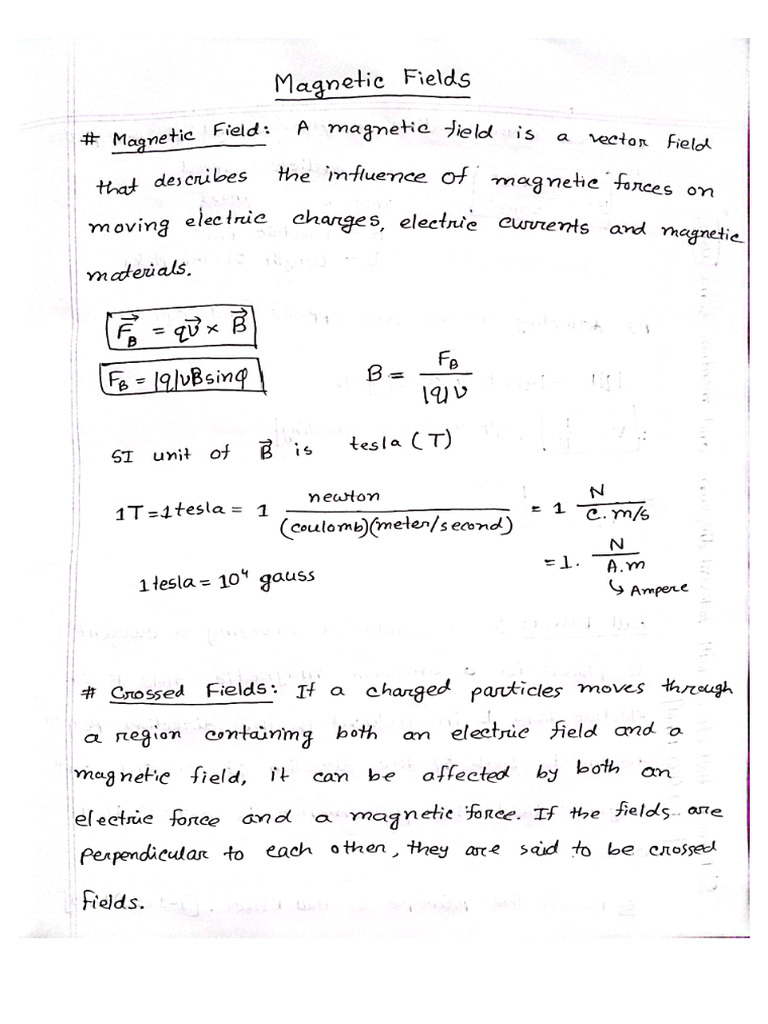 Magnetic Fields
# Magnetic Field: A magnetic field is a vector field
that describes the influence of magnetic forces on
moving electric charges, electric currents and magnetic
materials.
F⃗_B = qv⃗ × B⃗
F_B = |q|vBsinφ    B = F_B / |q|v
SI unit of B⃗ is tesla (T)
1T = 1 tesla = 1 newton / (coulomb)(meter/second) = 1 N / C.m/s
= 1. N / A.m
1 tesla = 10⁴ gauss    ↳ Ampere
# Crossed Fields: If a charged particles moves through
a region containing both an electric field and a
magnetic field, it can be affected by both an
electric force and a magnetic force. If the fields are
perpendicular to each other, they are said to be crossed
fields.